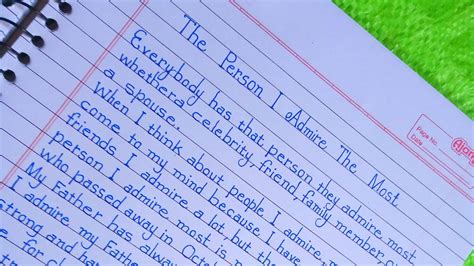 The Person I Admire The Most
Everybody has that person they admire most
whether a celebrity, friend, family member, or
a spouse.
When I think about people I admire, m
come to my mind because I have
friends I admire a lot, but the
person I admire most is m
who passed away in Octo
I admire my Fathe
My Father has alway
strong and ha
for
Page No.
Date